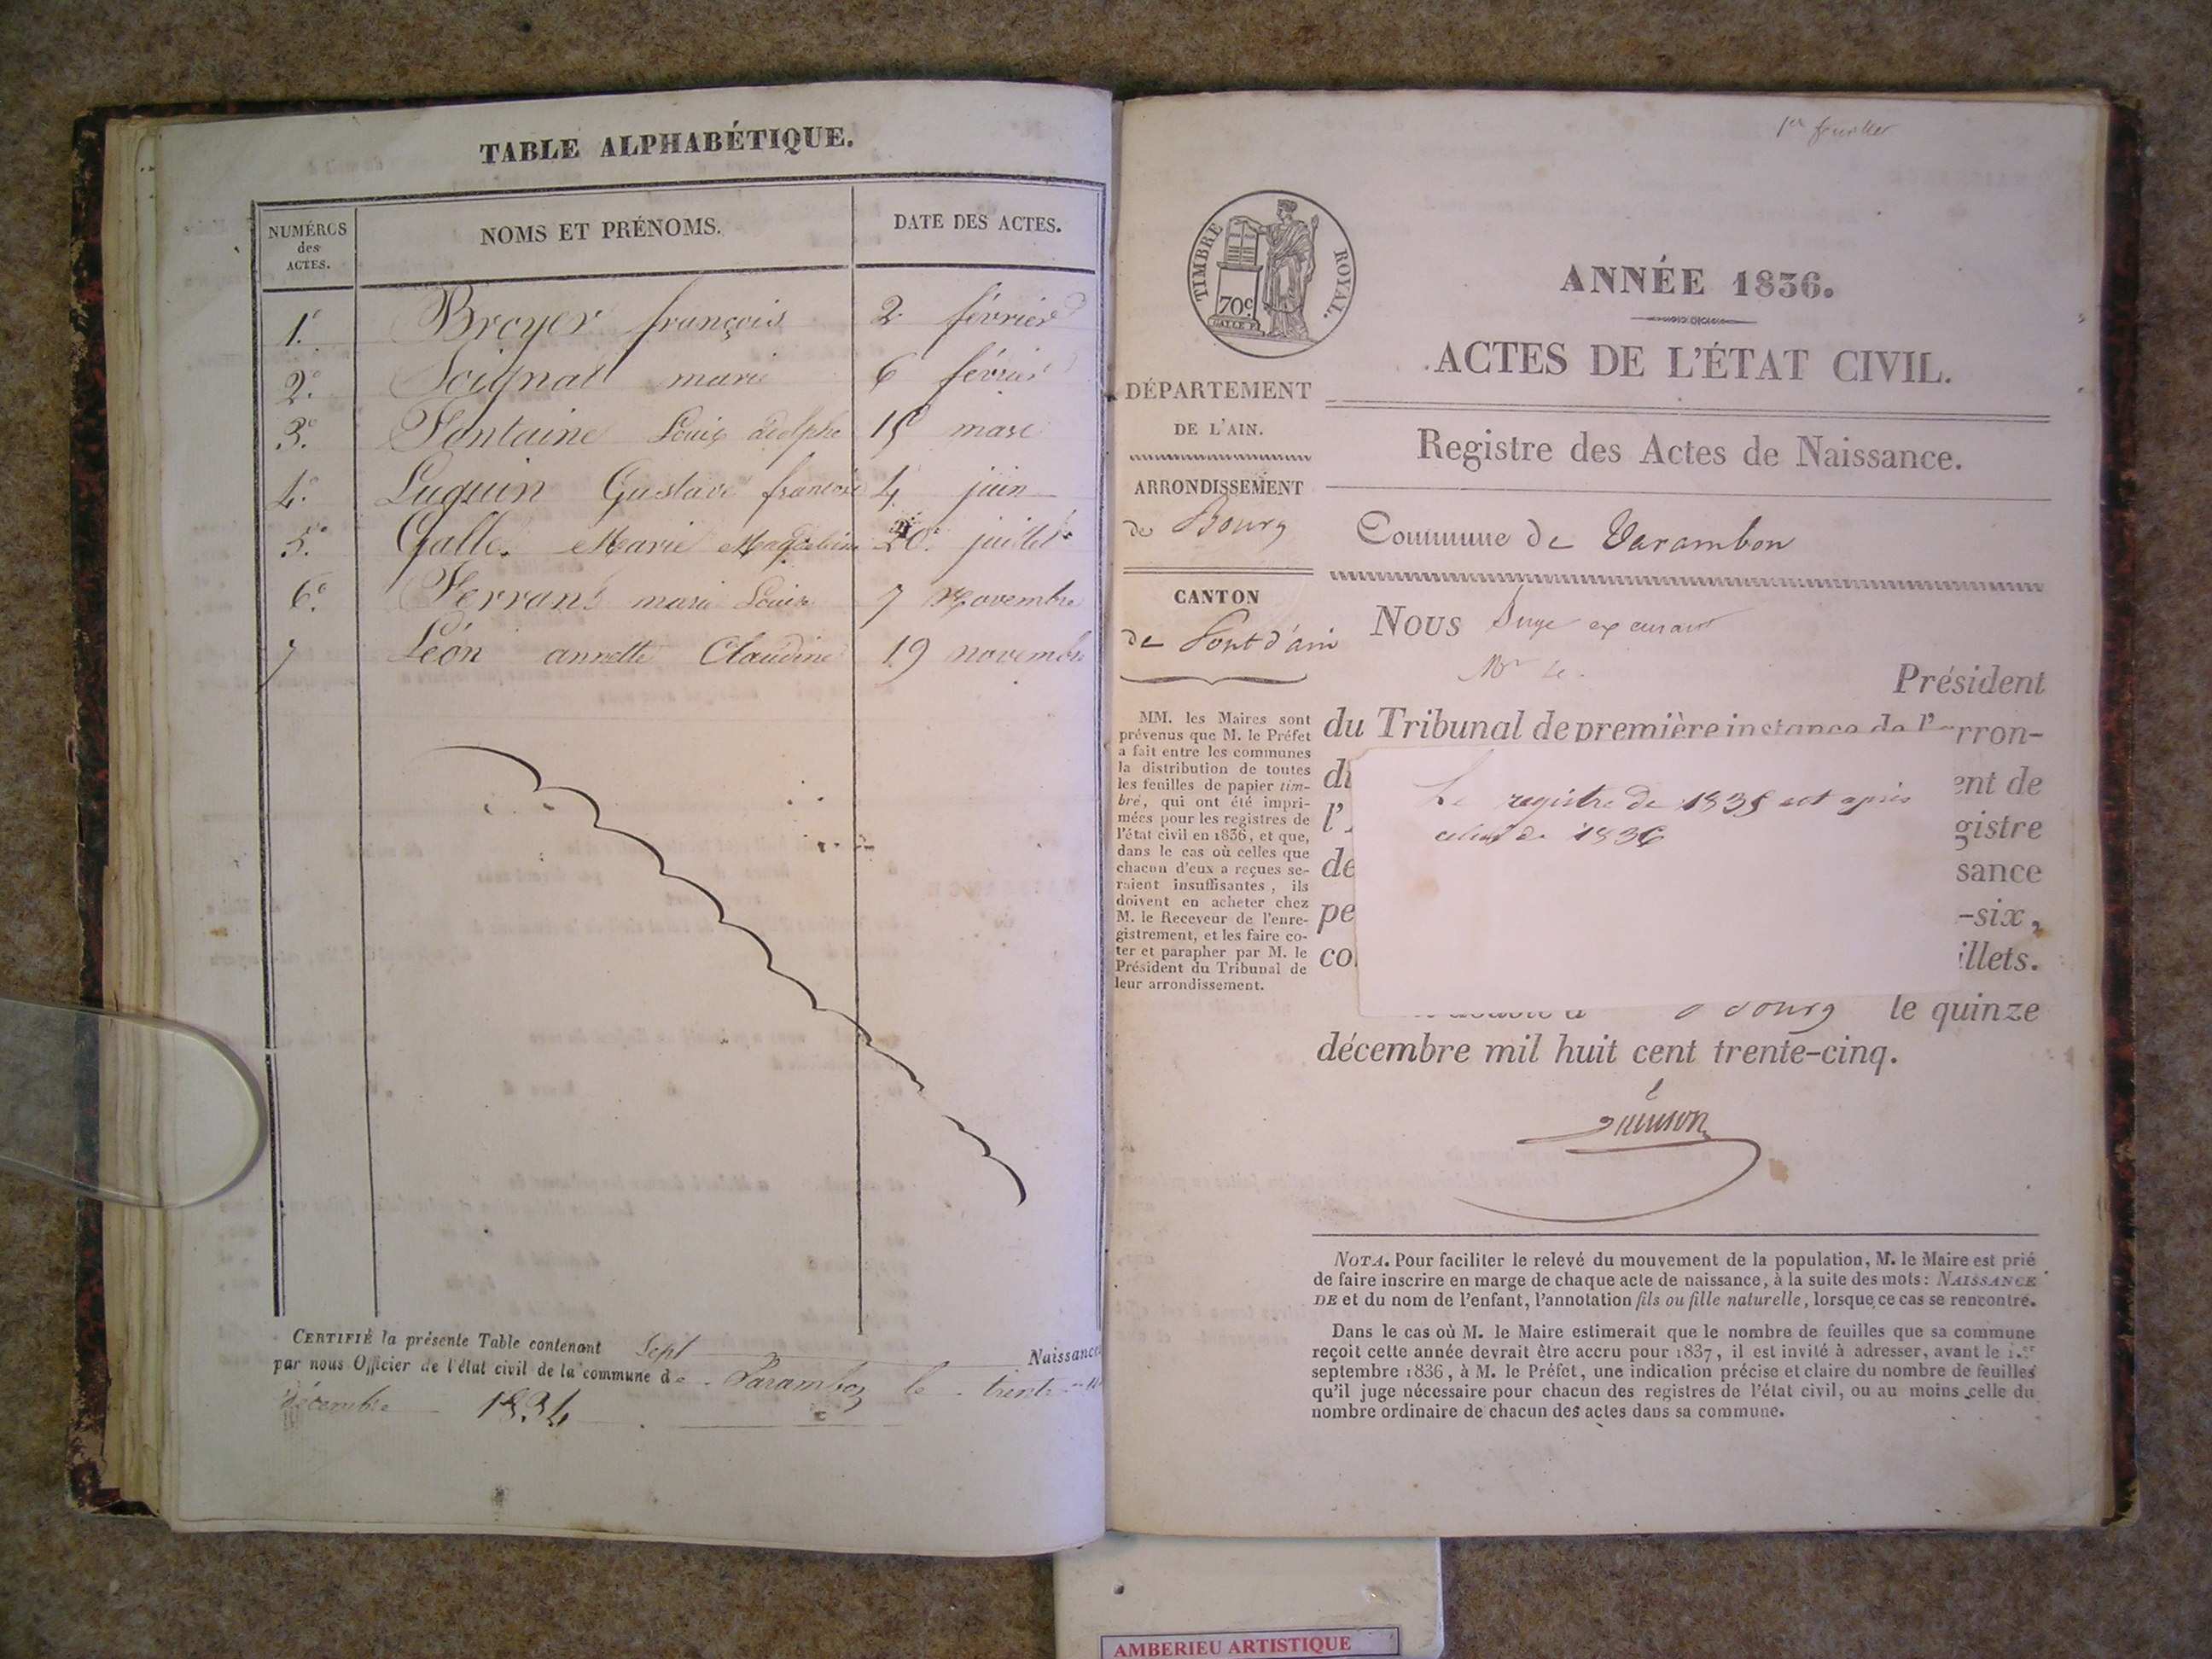 TABLE ALPHABÉTIQUE.
NUMÉROS des ACTES.
NOMS ET PRÉNOMS.
DATE DES ACTES.
1.e Broyer françois 2 février
2.e Soignal marie 6 février
3.e Fontaine Louis adolphe 15 mars
4.e Luquin Gustave françois 4 juin
5.e Galle Marie Magdeleine 20 juillet
6.e Ferrand marie Louise 7 Novembre
7 Léon annette Claudine 19 novembre
CERTIFIÉ la présente Table contenant Sept Naissances
par nous Officier de l'état civil de la commune de Varambon le trente
décembre 1834
1er feuillet
TIMBRE ROYAL.
70c.
ANNÉE 1836.
ACTES DE L'ÉTAT CIVIL.
DÉPARTEMENT
DE L'AIN.
ARRONDISSEMENT
de Bourg
CANTON
de Pont d'ain
MM. les Maires sont
prévenus que M. le Préfet
a fait entre les communes
la distribution de toutes
les feuilles de papier tim-
bré, qui ont été impri-
mées pour les registres de
l'état civil en 1836, et que,
dans le cas où celles que
chacun d'eux a reçues se-
raient insuffisantes, ils
doivent en acheter chez
M. le Receveur de l'enre-
gistrement, et les faire co-
ter et parapher par M. le
Président du Tribunal de
leur arrondissement.
Registre des Actes de Naissance.
Commune de Varambon
Nous Juge
Mr le Président
du Tribunal de première instance de l'arron-
di ent de
l' gistre
de sance
pe -six,
co illets.
Le registre de 1835 est après
celui de 1836
à Bourg le quinze
décembre mil huit cent trente-cinq.
NOTA. Pour faciliter le relevé du mouvement de la population, M. le Maire est prié
de faire inscrire en marge de chaque acte de naissance, à la suite des mots: NAISSANCE
DE et du nom de l'enfant, l'annotation fils ou fille naturelle, lorsque ce cas se rencontre.
Dans le cas où M. le Maire estimerait que le nombre de feuilles que sa commune
reçoit cette année devrait être accru pour 1837, il est invité à adresser, avant le 1.er
septembre 1836, à M. le Préfet, une indication précise et claire du nombre de feuilles
qu'il juge nécessaire pour chacun des registres de l'état civil, ou au moins celle du
nombre ordinaire de chacun des actes dans sa commune.
AMBERIEU ARTISTIQUE